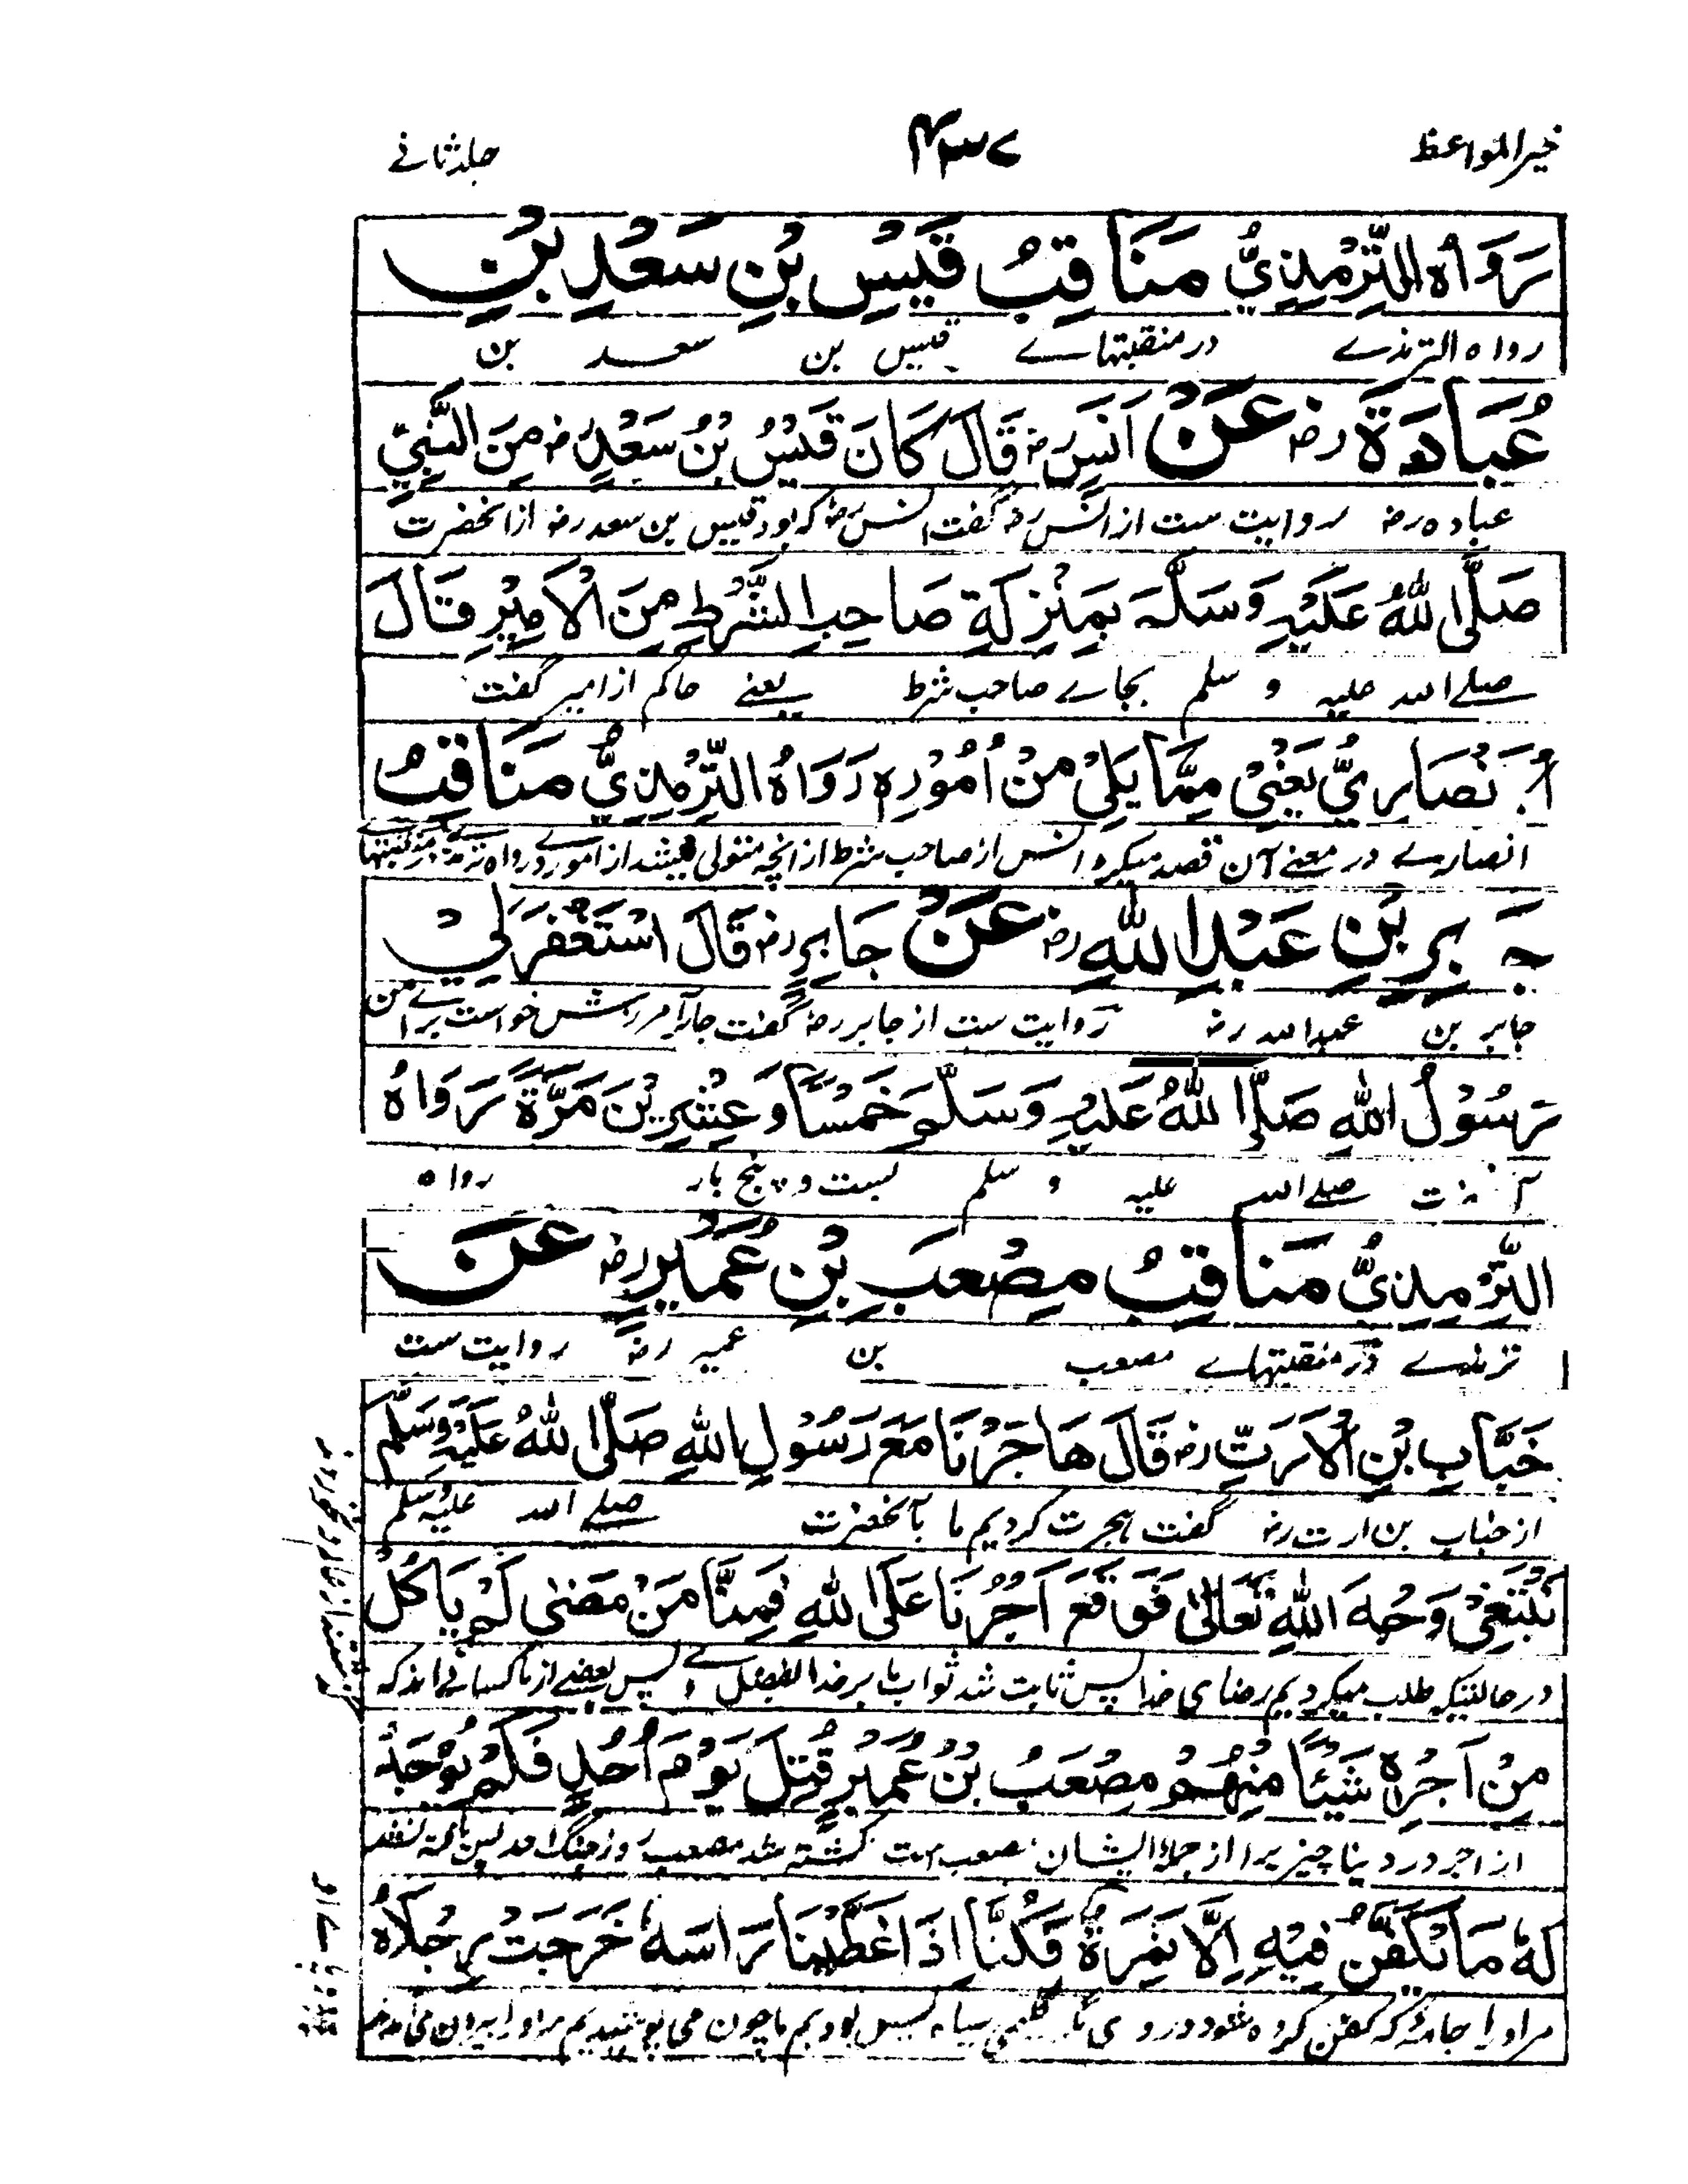 خیر المواعظ ۴۳۷ جلد ثانے
رَوَاهُ التِّرْمِذِيُّ مَنَاقِبُ قَيْسِ بْنِ سَعْدِ بْنِ
رواه الترمذے در منقبتہاے قیس بن سعد بن
عُبَادَةَ رضہ عَنْ اَنَسٍ رضہ قَالَ كَانَ قَيْسُ بْنُ سَعْدٍ رضہ مِنَ النَّبِيِّ
عباده رضہ روایت ست از انس رضہ گفت انس رضہ کہ بود قیس بن سعد رضہ از آنحضرت
صَلَّى اللهُ عَلَيْهِ وَسَلَّمَ بِمَنْزِلَةِ صَاحِبِ الشُّرَطِ مِنَ الْاَمِيْرِ قَالَ
صلے الله علیہ و سلم بجاے صاحب شرط یعنے حاکم از امیر گفت
نْصَارِيُّ يَعْنِيْ مِمَّا يَلِيْ مِنْ اُمُوْرِهِ رَوَاهُ التِّرْمِذِيُّ مَنَاقِبُ
انصارے در معنے آن قصد میکرد انس از صاحب شرط از انچہ متولی میشد از امور رواه
جَابِرِ بْنِ عَبْدِ اللهِ رضہ عَنْ جَابِرٍ رضہ قَالَ اسْتَغْفَرَ لِيْ
جابر بن عبدالله رضہ روایت ست از جابر رضہ گفت جابر آمرزش خواست براے من
رَسُوْلُ اللهِ صَلَّى اللهُ عَلَيْهِ وَسَلَّمَ خَمْسًا وَعِشْرِيْنَ مَرَّةً رَوَاهُ
صلے الله علیہ و سلم بست و پنج بار رواه
التِّرْمِذِيُّ مَنَاقِبُ مُصْعَبِ بْنِ عُمَيْرٍ رضہ عَنْ
ترمذے در منقبتہاے مصعب بن عمیر رضہ روایت ست
خَبَّابِ بْنِ الْاَرَتِّ رضہ قَالَ هَاجَرْنَا مَعَ رَسُوْلِ اللهِ صَلَّى اللهُ عَلَيْهِ وَسَلَّمَ
از خباب بن ارت رضہ گفت ہجرت کردیم ما بآنحضرت صلے الله علیہ وسلم
نَبْتَغِيْ وَجْهَ اللهِ تَعَالٰى فَوَقَعَ اَجْرُنَا عَلَى اللهِ فَمِنَّا مَنْ مَضٰى لَمْ يَاْكُلْ
در حالتیکہ طلب میکردیم رضای خدا پس ثابت شد ثواب ما بر خدا پس بعضے از ما کسانے اند کہ
مِنْ اَجْرِهٖ شَيْئًا مِنْهُمْ مُصْعَبُ بْنُ عُمَيْرٍ قُتِلَ يَوْمَ اُحُدٍ فَلَمْ يُوْجَدْ
از اجر در دنیا چیزیرا از جملۂ ایشان مصعب ست کشتہ شد مصعب روز جنگ احد پس یافتہ نشد
لَهٗ مَا يُكَفَّنُ فِيْهِ اِلَّا نَمِرَةٌ فَكُنَّا اِذَا غَطَّيْنَا رَاْسَهٗ خَرَجَتْ رِجْلَاهُ
مر او را جامۂ کہ کفن کرده شود در وی سیاه پس بودیم ما چون می پوشیدیم